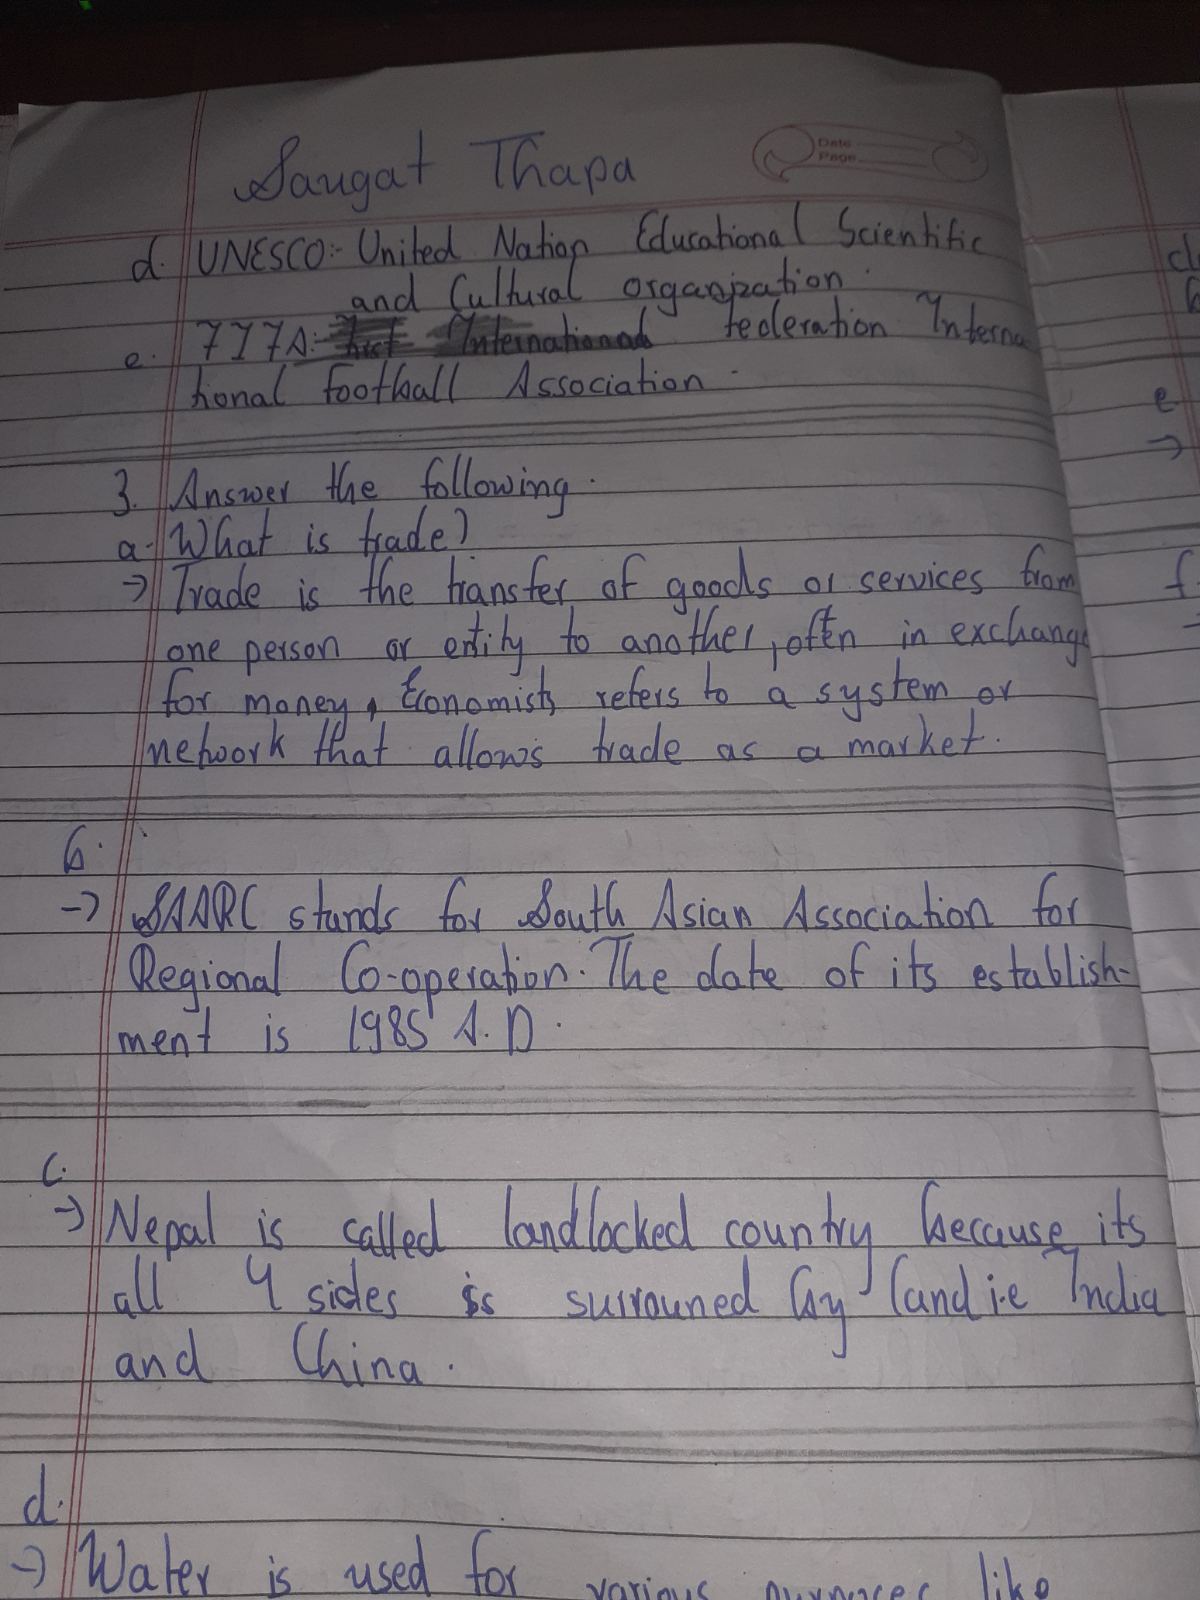 Saugat Thapa
Date
Page
d. UNESCO:- United Nation Educational Scientific
and Cultural organization.
e. FIFA:- federation Interna
tional football Association.
3. Answer the following.
a. What is trade?
→ Trade is the transfer of goods or services from
one person or entity to another, often in exchange
for money, Economists refers to a system or
network that allows trade as a market.
b.
→ SAARC stands for South Asian Association for
Regional Co-operation. The date of its establish-
ment is 1985 A.D.
c.
→ Nepal is called landlocked country because its
all 4 sides is surrouned by land i.e India
and China.
d.
→ Water is used for various purposes like
e
→
f